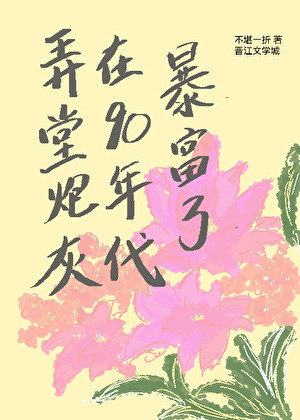 弄堂炮灰
在90年代
暴富了
不堪一折 著
晋江文学城